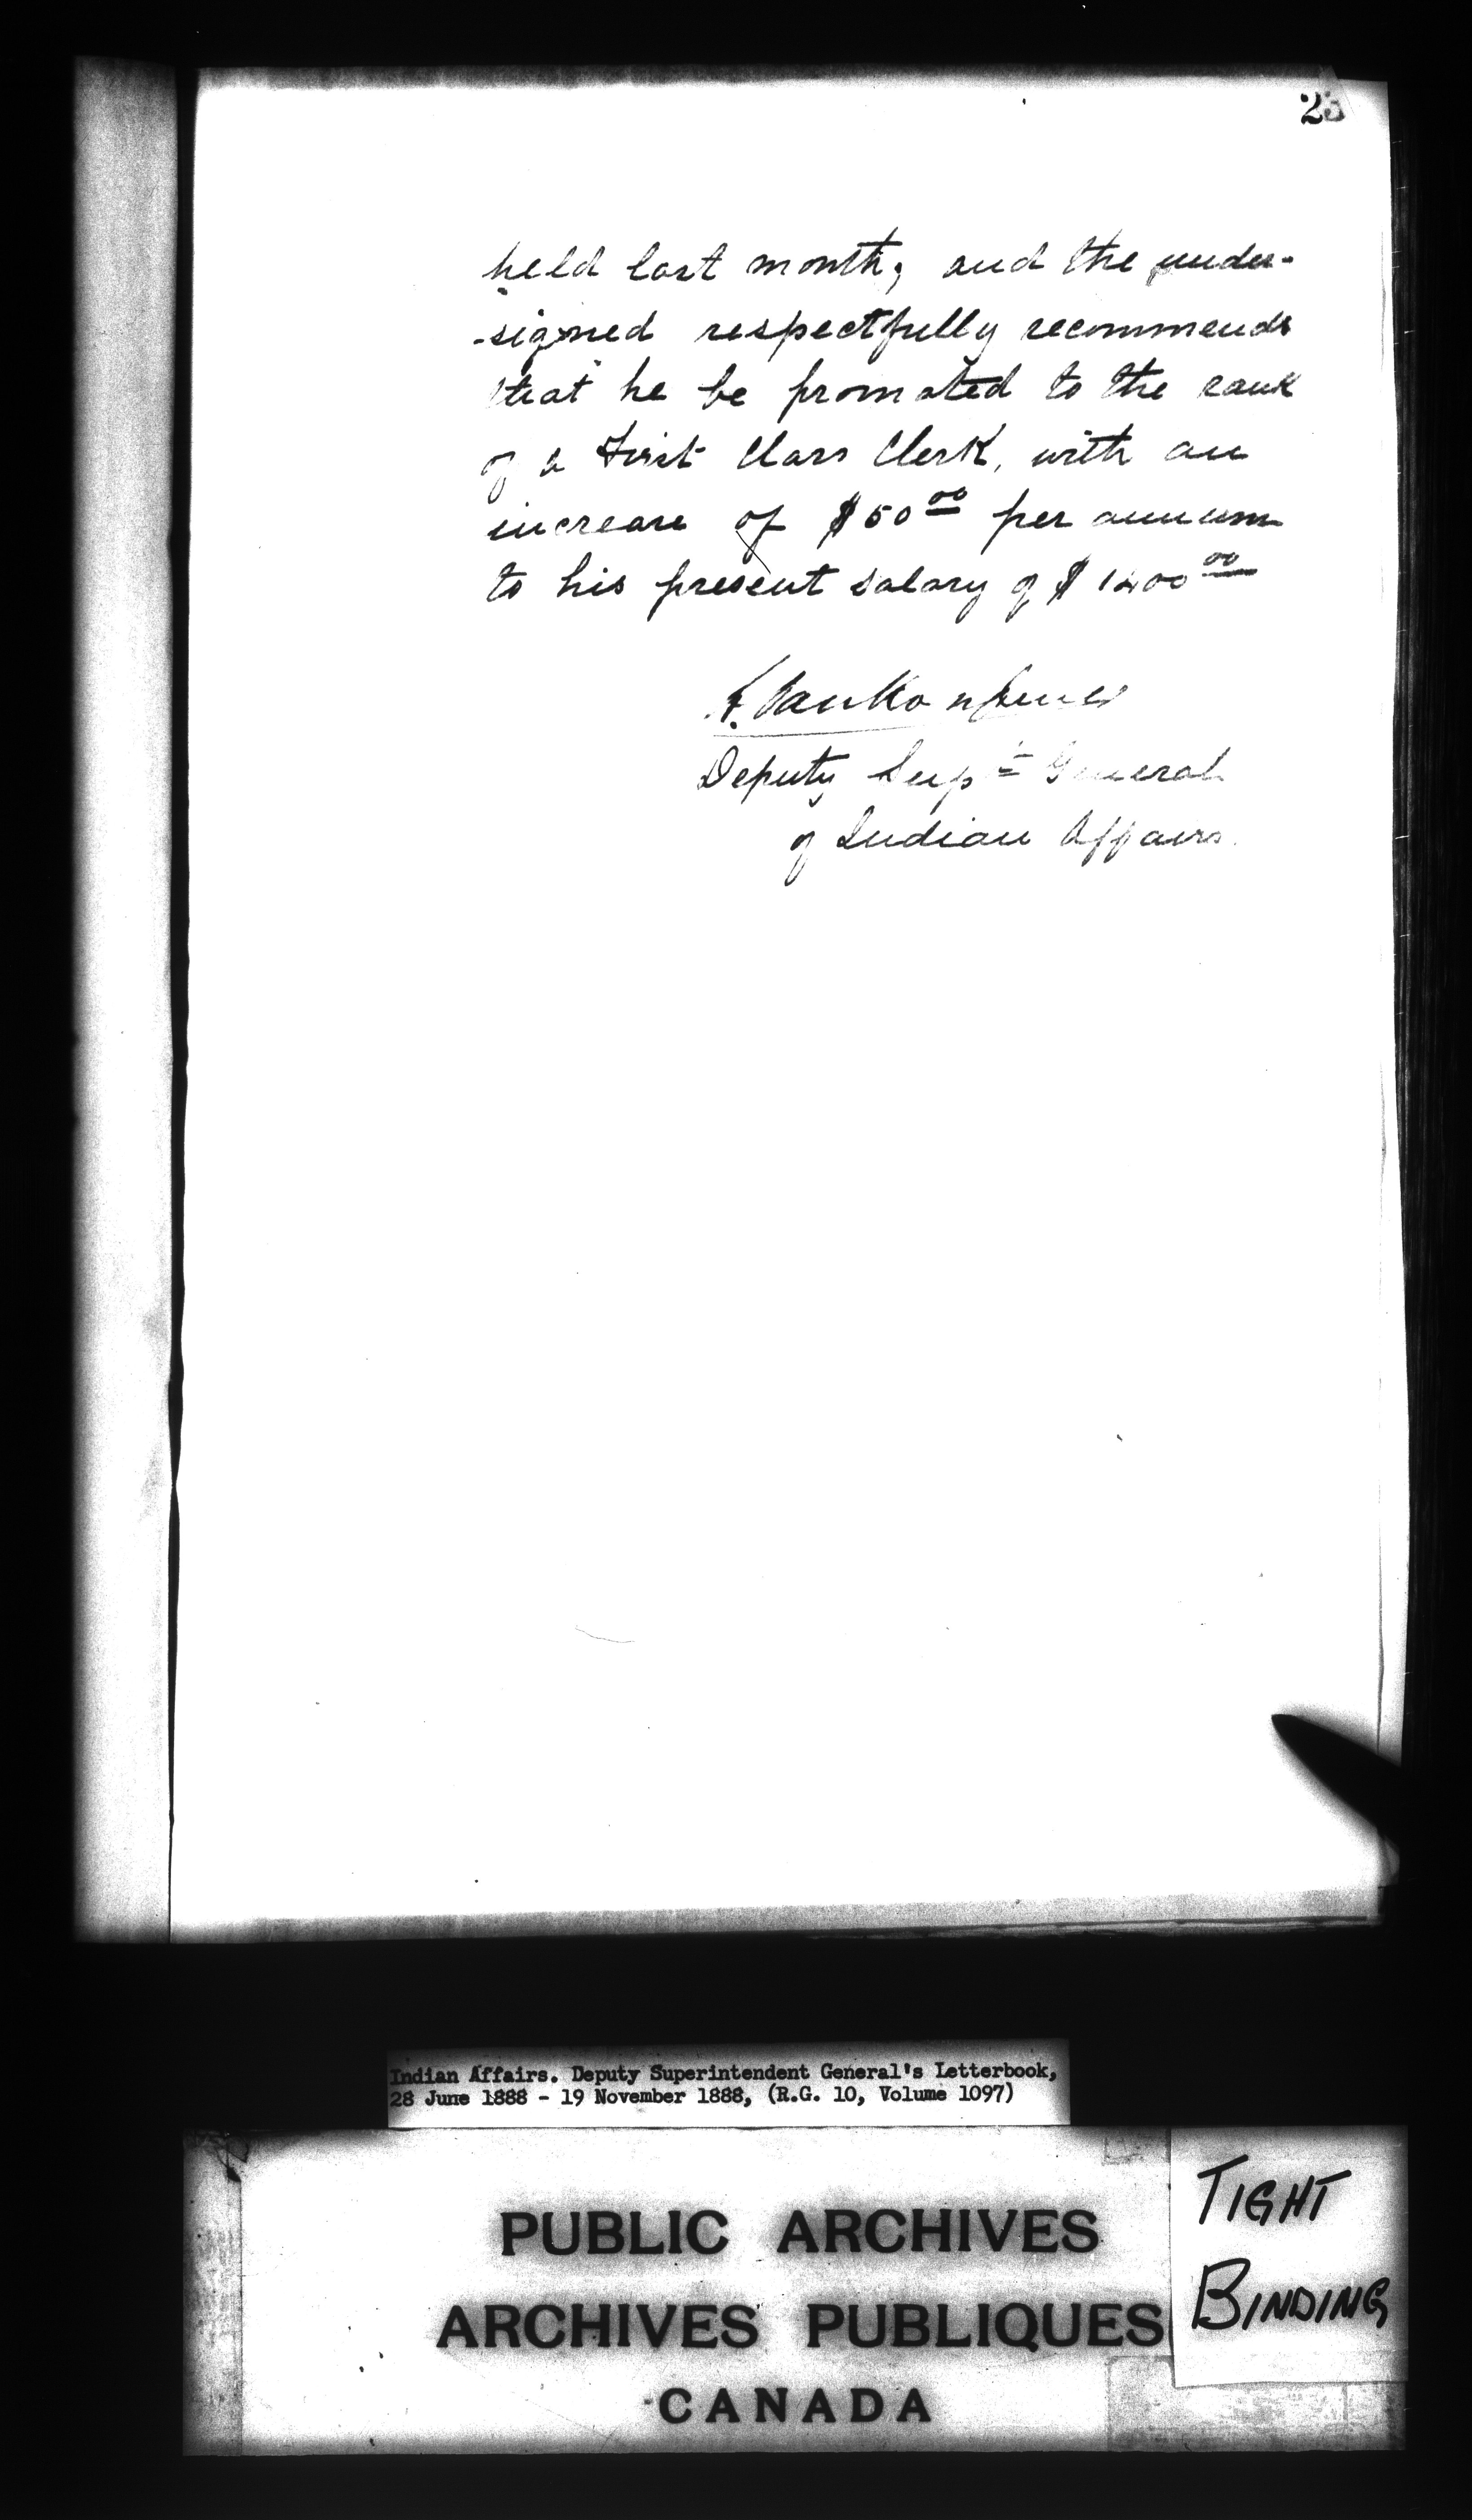 23
held last month; and the under-
-signed respectfully recommends
that he be promoted to the rank
of a First Class Clerk, with an
increase of $50 00 per annum
to his present salary of $1400 00
L. Vankoughnet
Deputy Supt General
of Indian Affairs.
Indian Affairs. Deputy Superintendent General's Letterbook,
28 June 1888 - 19 November 1888, (R.G. 10, Volume 1097)
PUBLIC ARCHIVES
ARCHIVES PUBLIQUES
CANADA
TIGHT
BINDING